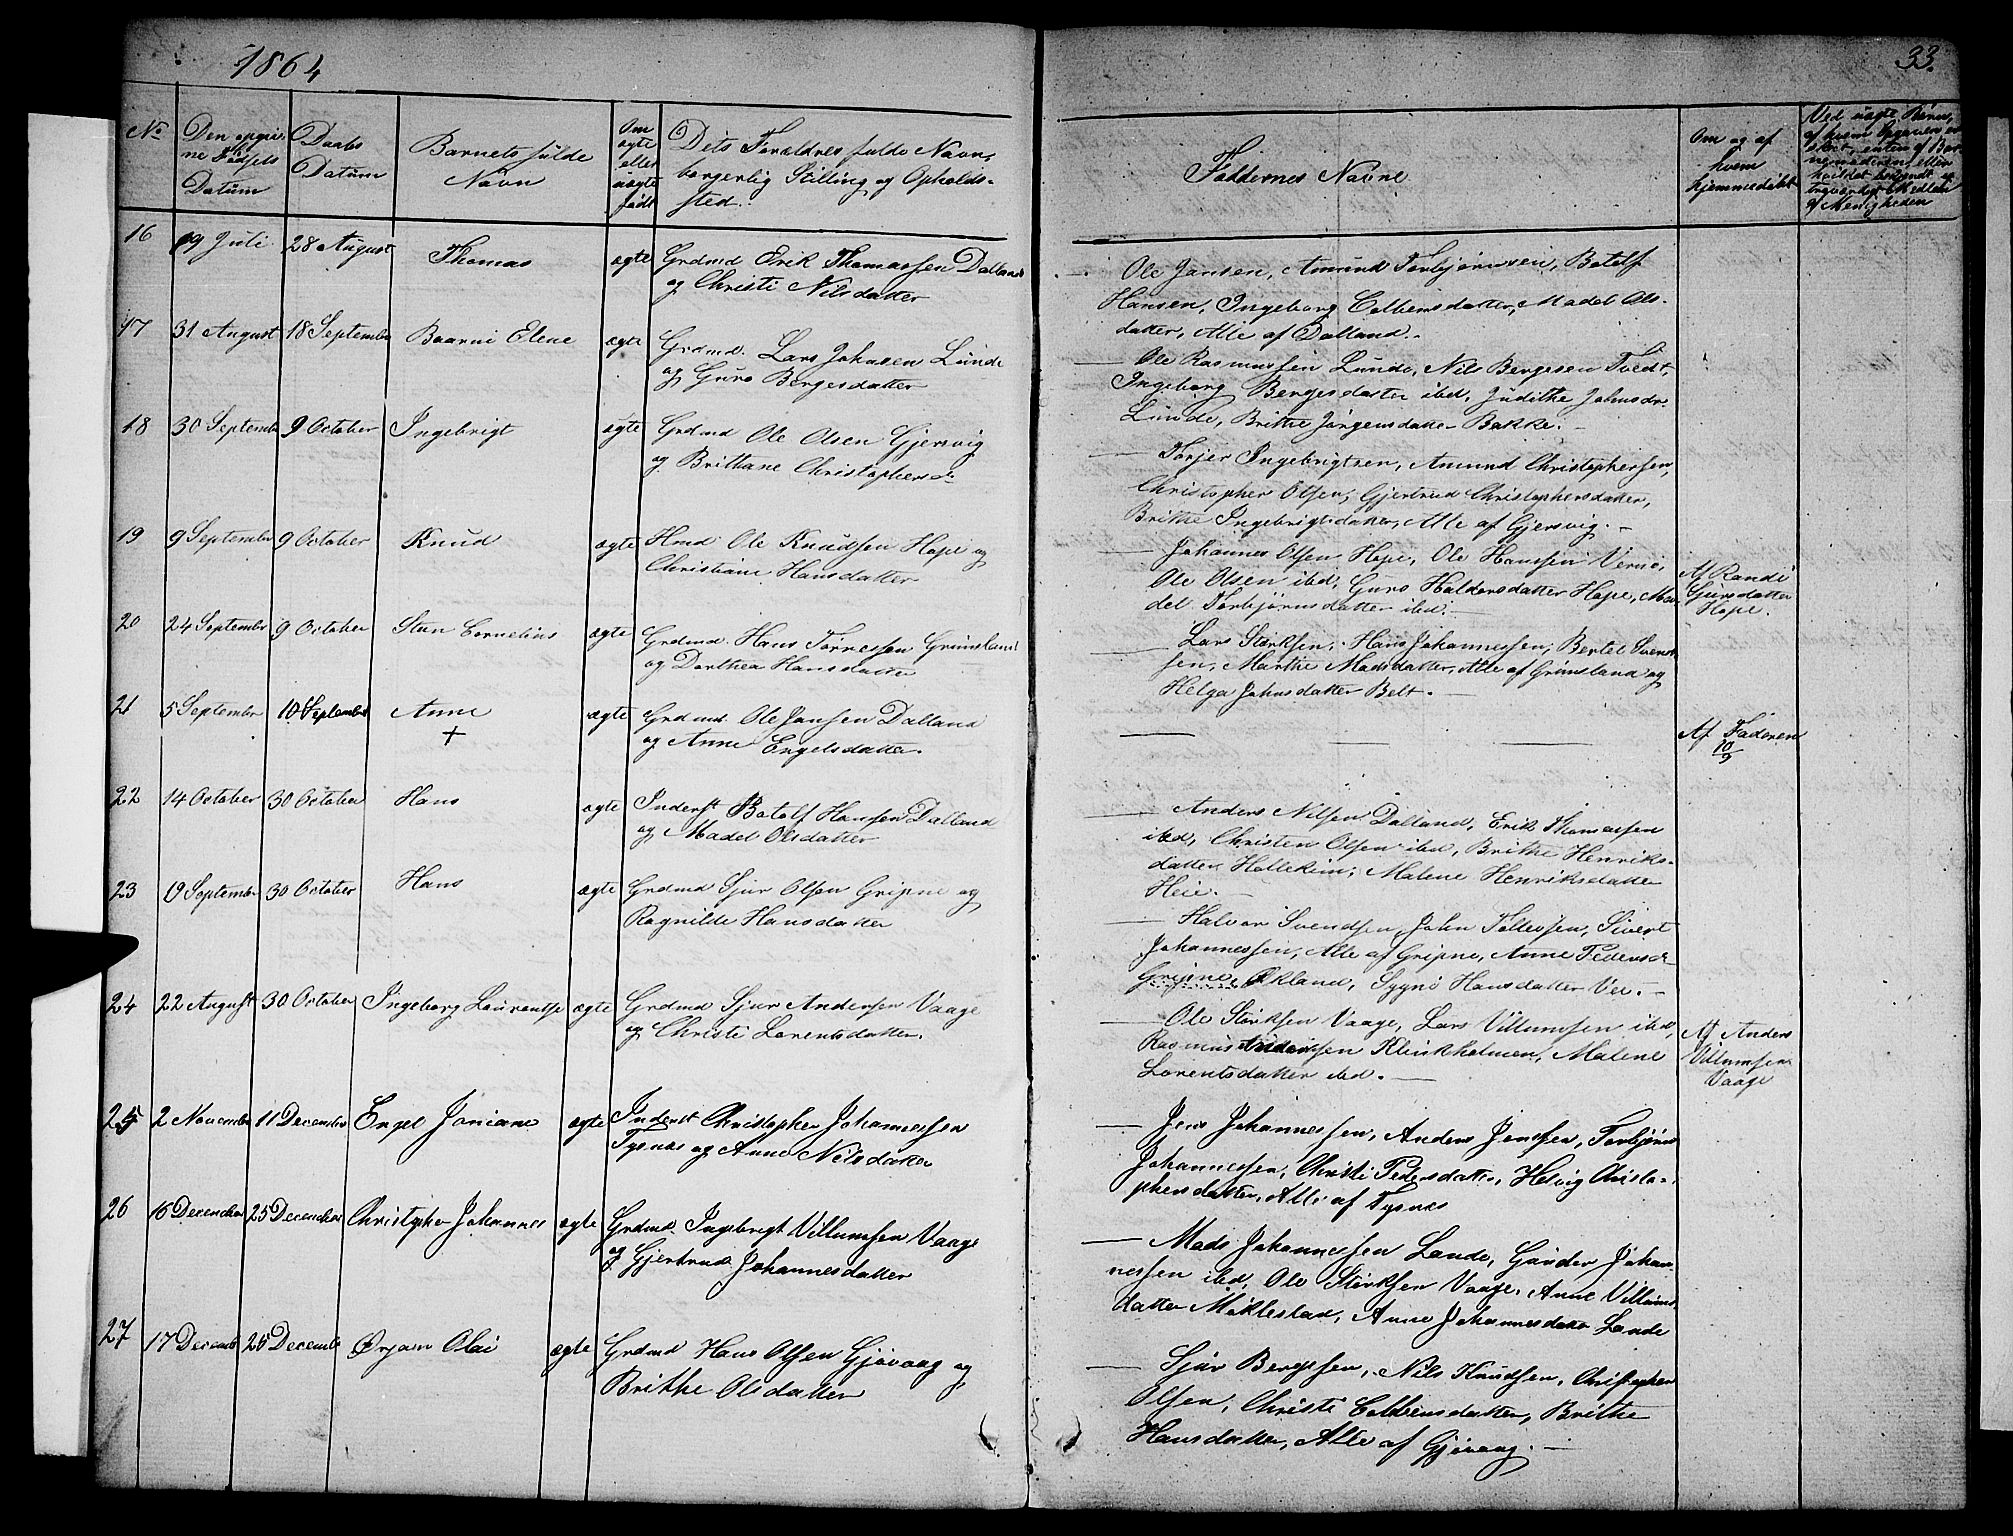 1864
33.
No
Den opgivne Fødsels Datum
Daabs Datum
Barnets fulde Navn
Om ægte eller uægte født
Dets Forældres fulde Navn, borgerlig Stilling og Opholdssted.
Faddernes Navne
Om og af hvem hjemmedøbt
Ved uægte Børn, af hvem Opgaven er skeet, enten af Barnemoderen, eller hvilket bekjendt og troværdigt Medlem af Menigheden
16 19 Juli 28 August Thomas ægte Grdmd Erik Thomassen Dalland
og Christi Nilsdatter
Ole Jansen, Amund Torbjørnsen, Botolf
Hansen, Ingeborg Colbensdatter, Madel Ols-
datter, Alle af Dalland.
17 31 August 18 September Baarni Elene ægte Grdmd. Lars Johnsen Lunde
og Guro Bergesdatter
Ole Rasmussen Lunde, Nils Bergesen Tvedt,
Ingeborg Bergesdatter ibd, Judithe Johnsdr
Lunde, Brithe Jørgensdatter Bakke.
18 30 Septemb 9 October Ingebrigt ægte Grdmd Ole Olsen Gjersvig
og Brithane Christophersdr
Torjer Ingebrigtsen, Amund Christophersen,
Christopher Olsen, Gjertrud Christophersdatter,
Brithe Ingebrigtsdatter, Alle af Gjersvig.
19 9 September 9 October Knud ægte Hmd Ole Knudsen Hope og
Christiane Hansdatter
Johannes Olsen Hope, Ole Hanssen Vernø,
Ole Olsen ibd, Guro Haldorsdatter Hope, Ma-
del Torbjørnsdatter ibd.
Af Randi
Gursdatter
Hope.
20 24 September 9 October Sten Cornelius ægte Grdmd. Hans Tørressen Grimsland
og Dorthea Hansdatter
Lars Størksen, Hans Johannessen, Bertel Svend-
sen, Marthe Madsdatter, Alle af Grimsland og
Helga Johnsdatter Belt.
21 5 September 10 September Anne ægte Grdmd. Ole Jansen Dalland
+
og Anne Engelsdatter.
Af Faderen
10/9
22 14 October 30 October Hans ægte Inderst Botolf Hansen Dalland
og Madel Olsdatter
Anders Nilsen Dalland, Erik Thomassen
ibd, Christen Olsen ibd, Brithe Henriks-
datter Hollekim, Malene Henriksdatter
Heie.
23 19 September 30 October Hans ægte Grdmd Sjur Olsen Gripne og
Ragnilde Hansdatter
Halvor Svendsen, John Tollessen, Sivert
Johannessen, Alle af Gripne, Anne Pedersdr
Gripne, Økland, Sygni Hansdatter Vee.
24 22 August 30 October Ingeborg Laurentse ægte Grdmd Sjur Andersen Vaage
og Christi Lorentsdatter.
Ole Størksen Vaage, Lars Villumsen ibd,
Rasmus Andersen Klinkholmen, Malene
Lorentsdatter ibd.
Af Anders
Villumsen
Vaage
25 2 November 11 December Engel Joniane ægte Inderst Christopher Johannessen
Tysnæs og Anne Nilsdatter
Jens Johannessen, Anders Jenssen, Torbjørn
Johannessen, Christi Pedersdatter, Helvig Christo-
phersdatter, Alle af Tysnes
26 16 December 25 December Christopher Johannes ægte Grdmd Ingebrigt Villumsen Vaage
og Gjertrud Johannesdatter
Mads Johannessen Lande, Gunder Johan-
nessen ibd, Ole Størksen Vaage, Anne Villums-
datter Møklestad, Anne Johannesdatter Lande
27 17 Decemb 26 Decemb Ørjan Olai ægte Grdmd Hans Olsen Gjøvaag og
Brithe Olsdatter
Sjur Bergessen, Nils Knudsen, Christopher
Olsen, Christi Colbensdatter, Brithe
Hansdatter, Alle af Gjøvaag.